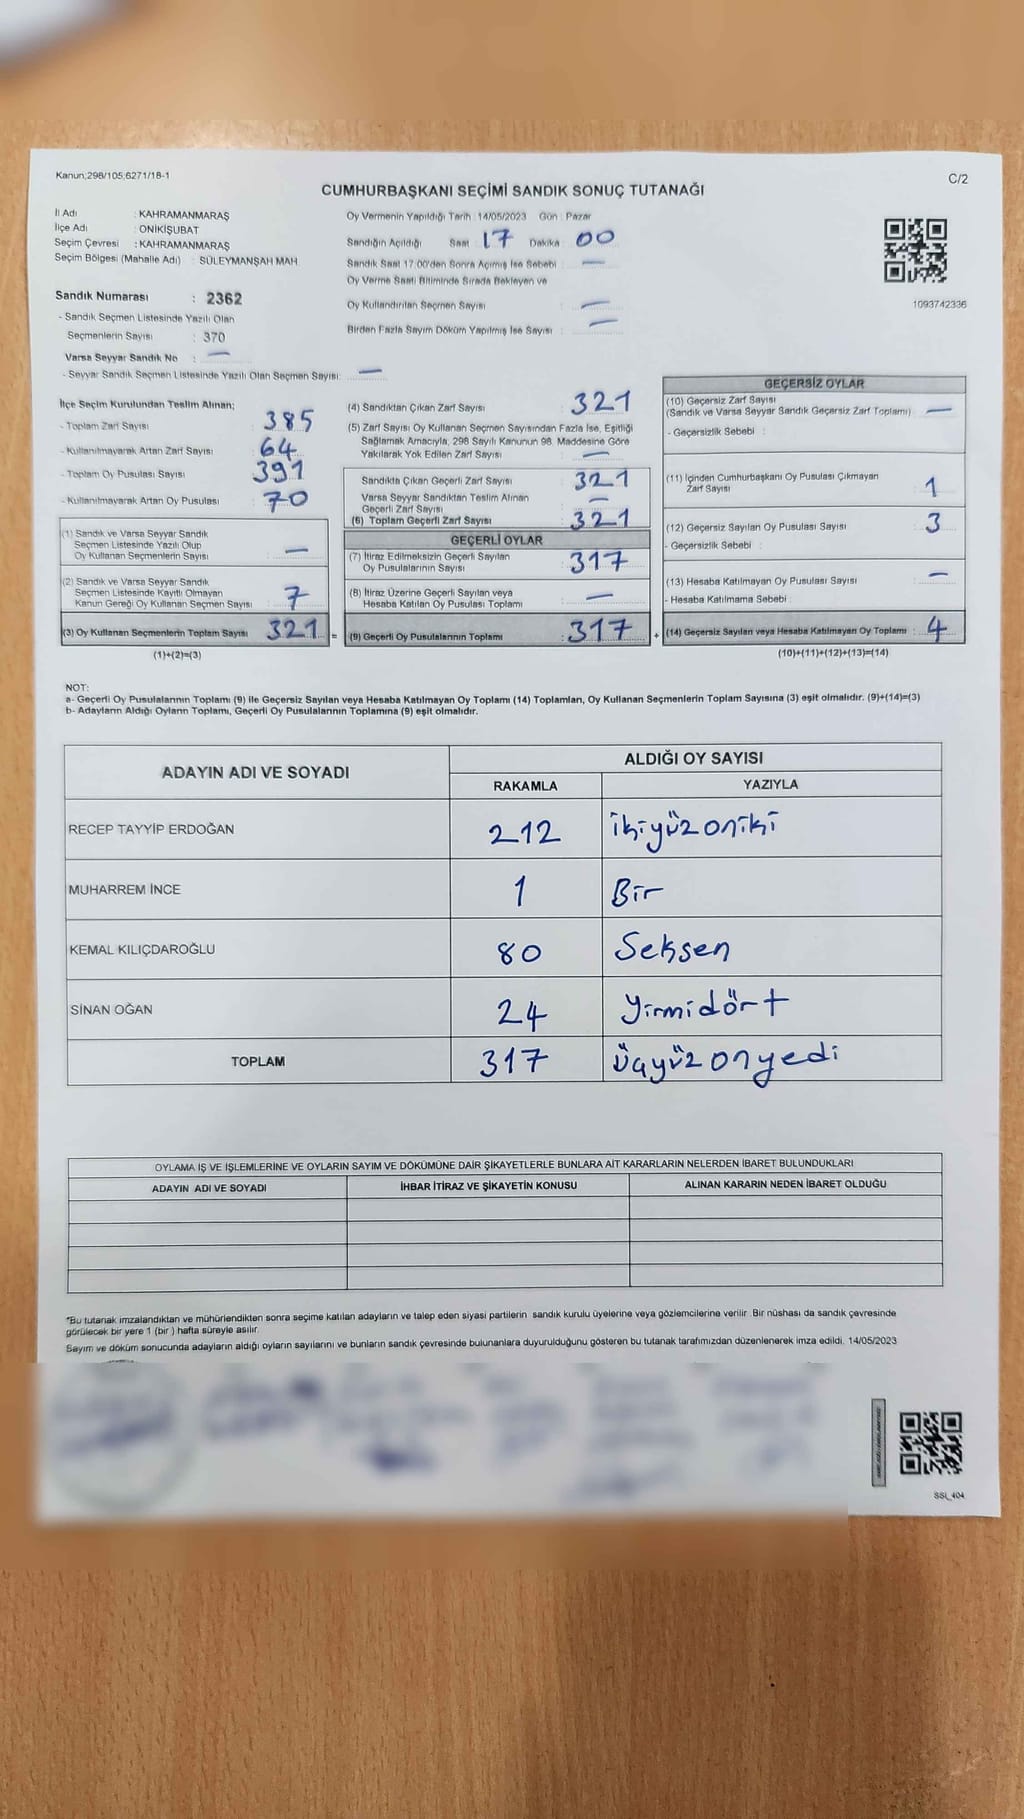 Kanun;298/105;6271/18-1
C/2
CUMHURBAŞKANI SEÇİMİ SANDIK SONUÇ TUTANAĞI
İl Adı : KAHRAMANMARAŞ
İlçe Adı : ONİKİŞUBAT
Seçim Çevresi : KAHRAMANMARAŞ
Seçim Bölgesi (Mahalle Adı) : SÜLEYMANŞAH MAH.
Oy Vermenin Yapıldığı Tarih : 14/05/2023 Gün : Pazar
Sandığın Açıldığı Saat 17 Dakika 00
Sandık Saat 17:00'den Sonra Açılmış İse Sebebi : —
Oy Verme Saati Bitiminde Sırada Bekleyen ve
Oy Kullandırılan Seçmen Sayısı : —
Birden Fazla Sayım Döküm Yapılmış İse Sayısı : —
1093742336
Sandık Numarası : 2362
- Sandık Seçmen Listesinde Yazılı Olan
Seçmenlerin Sayısı : 370
Varsa Seyyar Sandık No : —
- Seyyar Sandık Seçmen Listesinde Yazılı Olan Seçmen Sayısı: —
İlçe Seçim Kurulundan Teslim Alınan;
- Toplam Zarf Sayısı : 385
- Kullanılmayarak Artan Zarf Sayısı : 64
- Toplam Oy Pusulası Sayısı : 391
- Kullanılmayarak Artan Oy Pusulası : 70
(1) Sandık ve Varsa Seyyar Sandık
Seçmen Listesinde Yazılı Olup
Oy Kullanan Seçmenlerin Sayısı : —
(2) Sandık ve Varsa Seyyar Sandık
Seçmen Listesinde Kayıtlı Olmayan
Kanun Gereği Oy Kullanan Seçmen Sayısı : 7
(3) Oy Kullanan Seçmenlerin Toplam Sayısı : 321 =
(1)+(2)=(3)
(4) Sandıktan Çıkan Zarf Sayısı : 321
(5) Zarf Sayısı Oy Kullanan Seçmen Sayısından Fazla İse, Eşitliği
Sağlamak Amacıyla, 298 Sayılı Kanunun 98. Maddesine Göre
Yakılarak Yok Edilen Zarf Sayısı : —
Sandıkta Çıkan Geçerli Zarf Sayısı : 321
Varsa Seyyar Sandıktan Teslim Alınan
Geçerli Zarf Sayısı : —
(6) Toplam Geçerli Zarf Sayısı : 321
GEÇERLİ OYLAR
(7) İtiraz Edilmeksizin Geçerli Sayılan
Oy Pusulalarının Sayısı : 317
(8) İtiraz Üzerine Geçerli Sayılan veya
Hesaba Katılan Oy Pusulası Toplamı : —
(9) Geçerli Oy Pusulalarının Toplamı : 317 +
GEÇERSİZ OYLAR
(10) Geçersiz Zarf Sayısı
(Sandık ve Varsa Seyyar Sandık Geçersiz Zarf Toplamı) : —
- Geçersizlik Sebebi :
(11) İçinden Cumhurbaşkanı Oy Pusulası Çıkmayan
Zarf Sayısı : 1
(12) Geçersiz Sayılan Oy Pusulası Sayısı : 3
- Geçersizlik Sebebi :
(13) Hesaba Katılmayan Oy Pusulası Sayısı : —
- Hesaba Katılmama Sebebi :
(14) Geçersiz Sayılan veya Hesaba Katılmayan Oy Toplamı : 4
(10)+(11)+(12)+(13)=(14)
NOT:
a- Geçerli Oy Pusulalarının Toplamı (9) ile Geçersiz Sayılan veya Hesaba Katılmayan Oy Toplamı (14) Toplamları, Oy Kullanan Seçmenlerin Toplam Sayısına (3) eşit olmalıdır. (9)+(14)=(3)
b- Adayların Aldığı Oyların Toplamı, Geçerli Oy Pusulalarının Toplamına (9) eşit olmalıdır.
ADAYIN ADI VE SOYADI
ALDIĞI OY SAYISI
RAKAMLA YAZIYLA
RECEP TAYYİP ERDOĞAN 212 İkiyüzoniki
MUHARREM İNCE 1 Bir
KEMAL KILIÇDAROĞLU 80 Seksen
SİNAN OĞAN 24 Yirmidört
TOPLAM 317 Üçyüzonyedi
OYLAMA İŞ VE İŞLEMLERİNE VE OYLARIN SAYIM VE DÖKÜMÜNE DAİR ŞİKAYETLERLE BUNLARA AİT KARARLARIN NELERDEN İBARET BULUNDUKLARI
ADAYIN ADI VE SOYADI İHBAR İTİRAZ VE ŞİKAYETİN KONUSU ALINAN KARARIN NEDEN İBARET OLDUĞU
*Bu tutanak imzalandıktan ve mühürlendikten sonra seçime katılan adayların ve talep eden siyasi partilerin sandık kurulu üyelerine veya gözlemcilerine verilir. Bir nüshası da sandık çevresinde
görülecek bir yere 1 (bir ) hafta süreyle asılır.
Sayım ve döküm sonucunda adayların aldığı oyların sayılarını ve bunların sandık çevresinde bulunanlara duyurulduğunu gösteren bu tutanak tarafımızdan düzenlenerek imza edildi. 14/05/2023
SSI_404